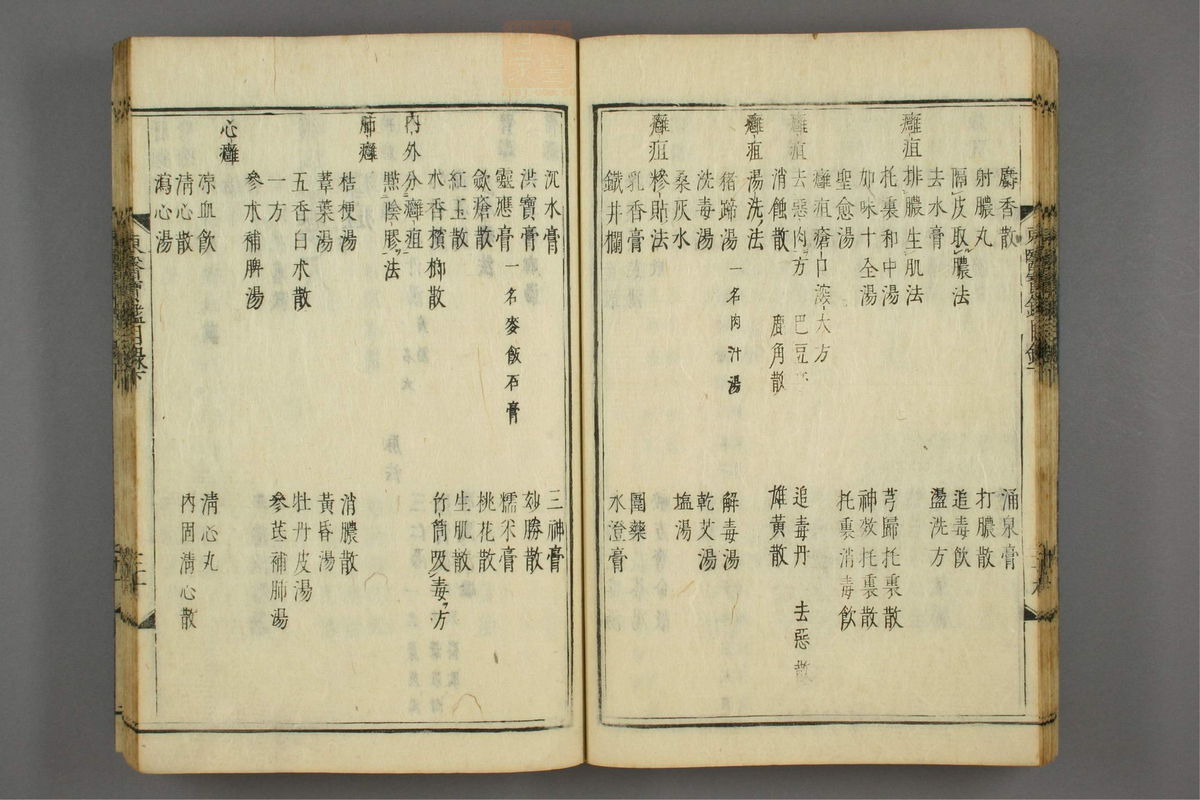 麝香散 涌泉膏
射膿丸 打膿散
隔皮取膿法 追毒飲
去水膏 盪洗方
癰疽排膿生肌法
托裏和中湯 芎歸托裏散
加味十全湯 神效托裏散
聖愈湯 托裏消毒飲
癰疽瘡口深大方
癰疽去惡肉方 巴豆 追毒丹 去惡散
消蝕散 鹿角散 雄黃散
癰疽湯洗法
猪蹄湯 一名肉汁湯 解毒湯
洗毒湯 乾艾湯
桑灰水 塩湯
癰疽糝貼法
乳香膏 圍藥
鐵井欄 水澄膏
沉水膏 三神膏
洪寶膏 妙勝散
靈應膏 一名麥飯石膏 糯米膏
斂瘡散 桃花散
紅玉散 生肌散
水香檳榔散 竹筒吸毒方
內外分癰疽
㸃陰膠法
肺癰
桔梗湯 消膿散
葦葉湯 黃昏湯
五香白朮散 牡丹皮湯
一方 參芪補肺湯
參朮補脾湯
心癰
凉血飲 淸心丸
淸心散 內固淸心散
瀉心湯
東醫寶鑑目錄下